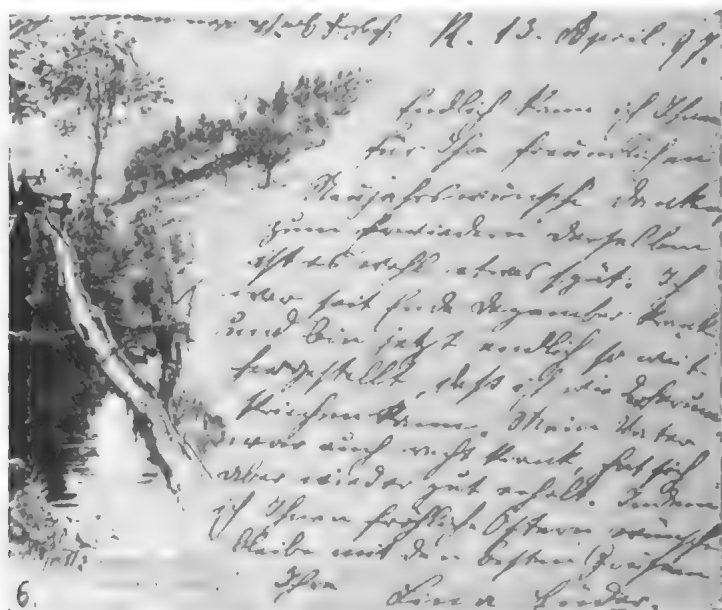 R. 13. April. 97.
Endlich kann ich Ihnen
für Ihre freundlichen
Neujahrswünsche danken
zum Erwiedern derselben
ist es wohl etwas spät. Ich
war seit Ende Dezember krank
und bin jetzt endlich so weit
hergestellt, daß ich wie
kriechen kann. Mein Vater
war auch recht krank, hat sich
aber wieder gut erholt. Indem
ich Ihnen fröhliche Ostern wünsche
bleibe mit den besten Grüßen
Ihre Lina
6.